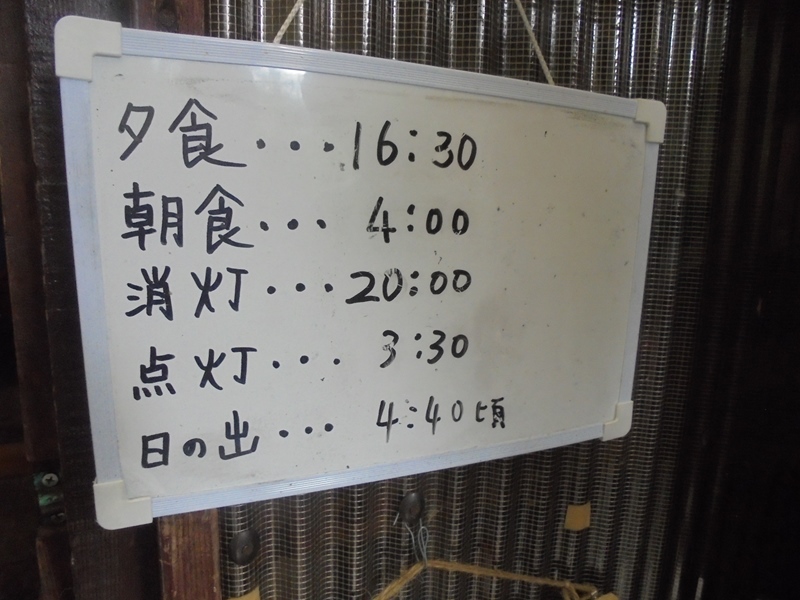 夕食・・・16:30
朝食・・・4:00
消灯・・・20:00
点灯・・・3:30
日の出・・・4:40頃